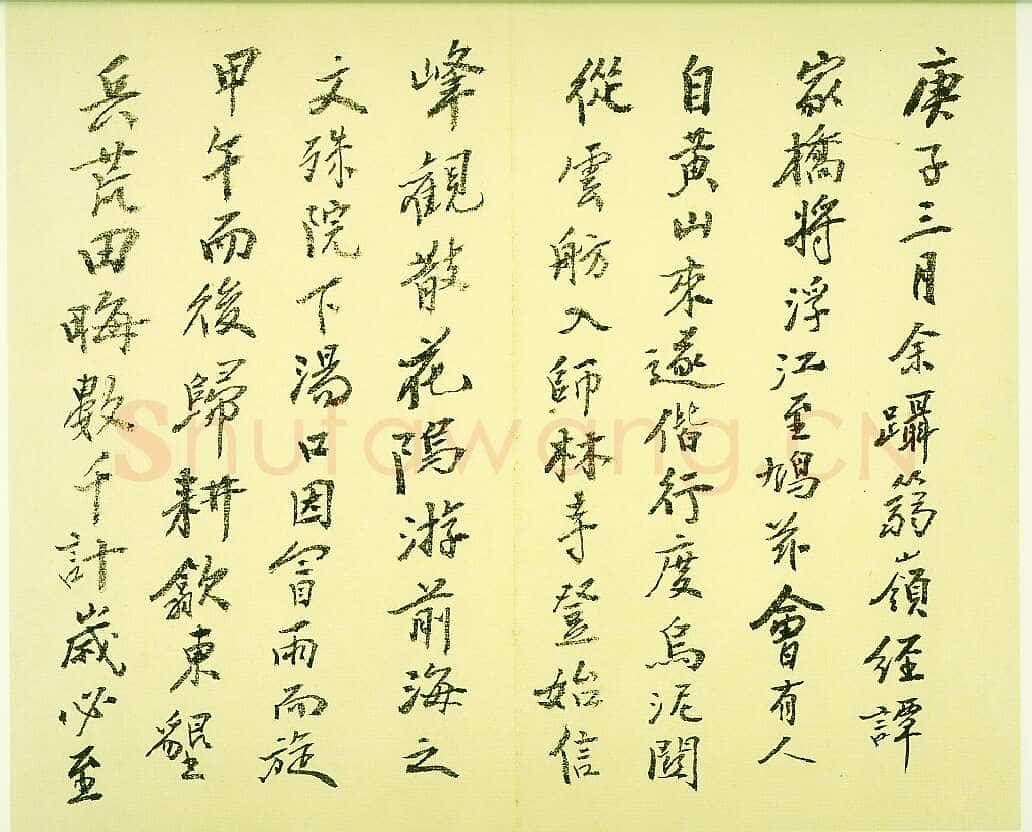 庚子三月余躡箬嶺經譚
家橋將浮江至鳩茲會有人
自黃山來遂偕行度烏泥關
從雲舫入師林寺登始信
峰觀散花隖游前海之
文殊院下湯口因冒雨而旋
甲午而後歸耕歙東墾
兵荒田畮數千計歲必至
Shufawang.CN